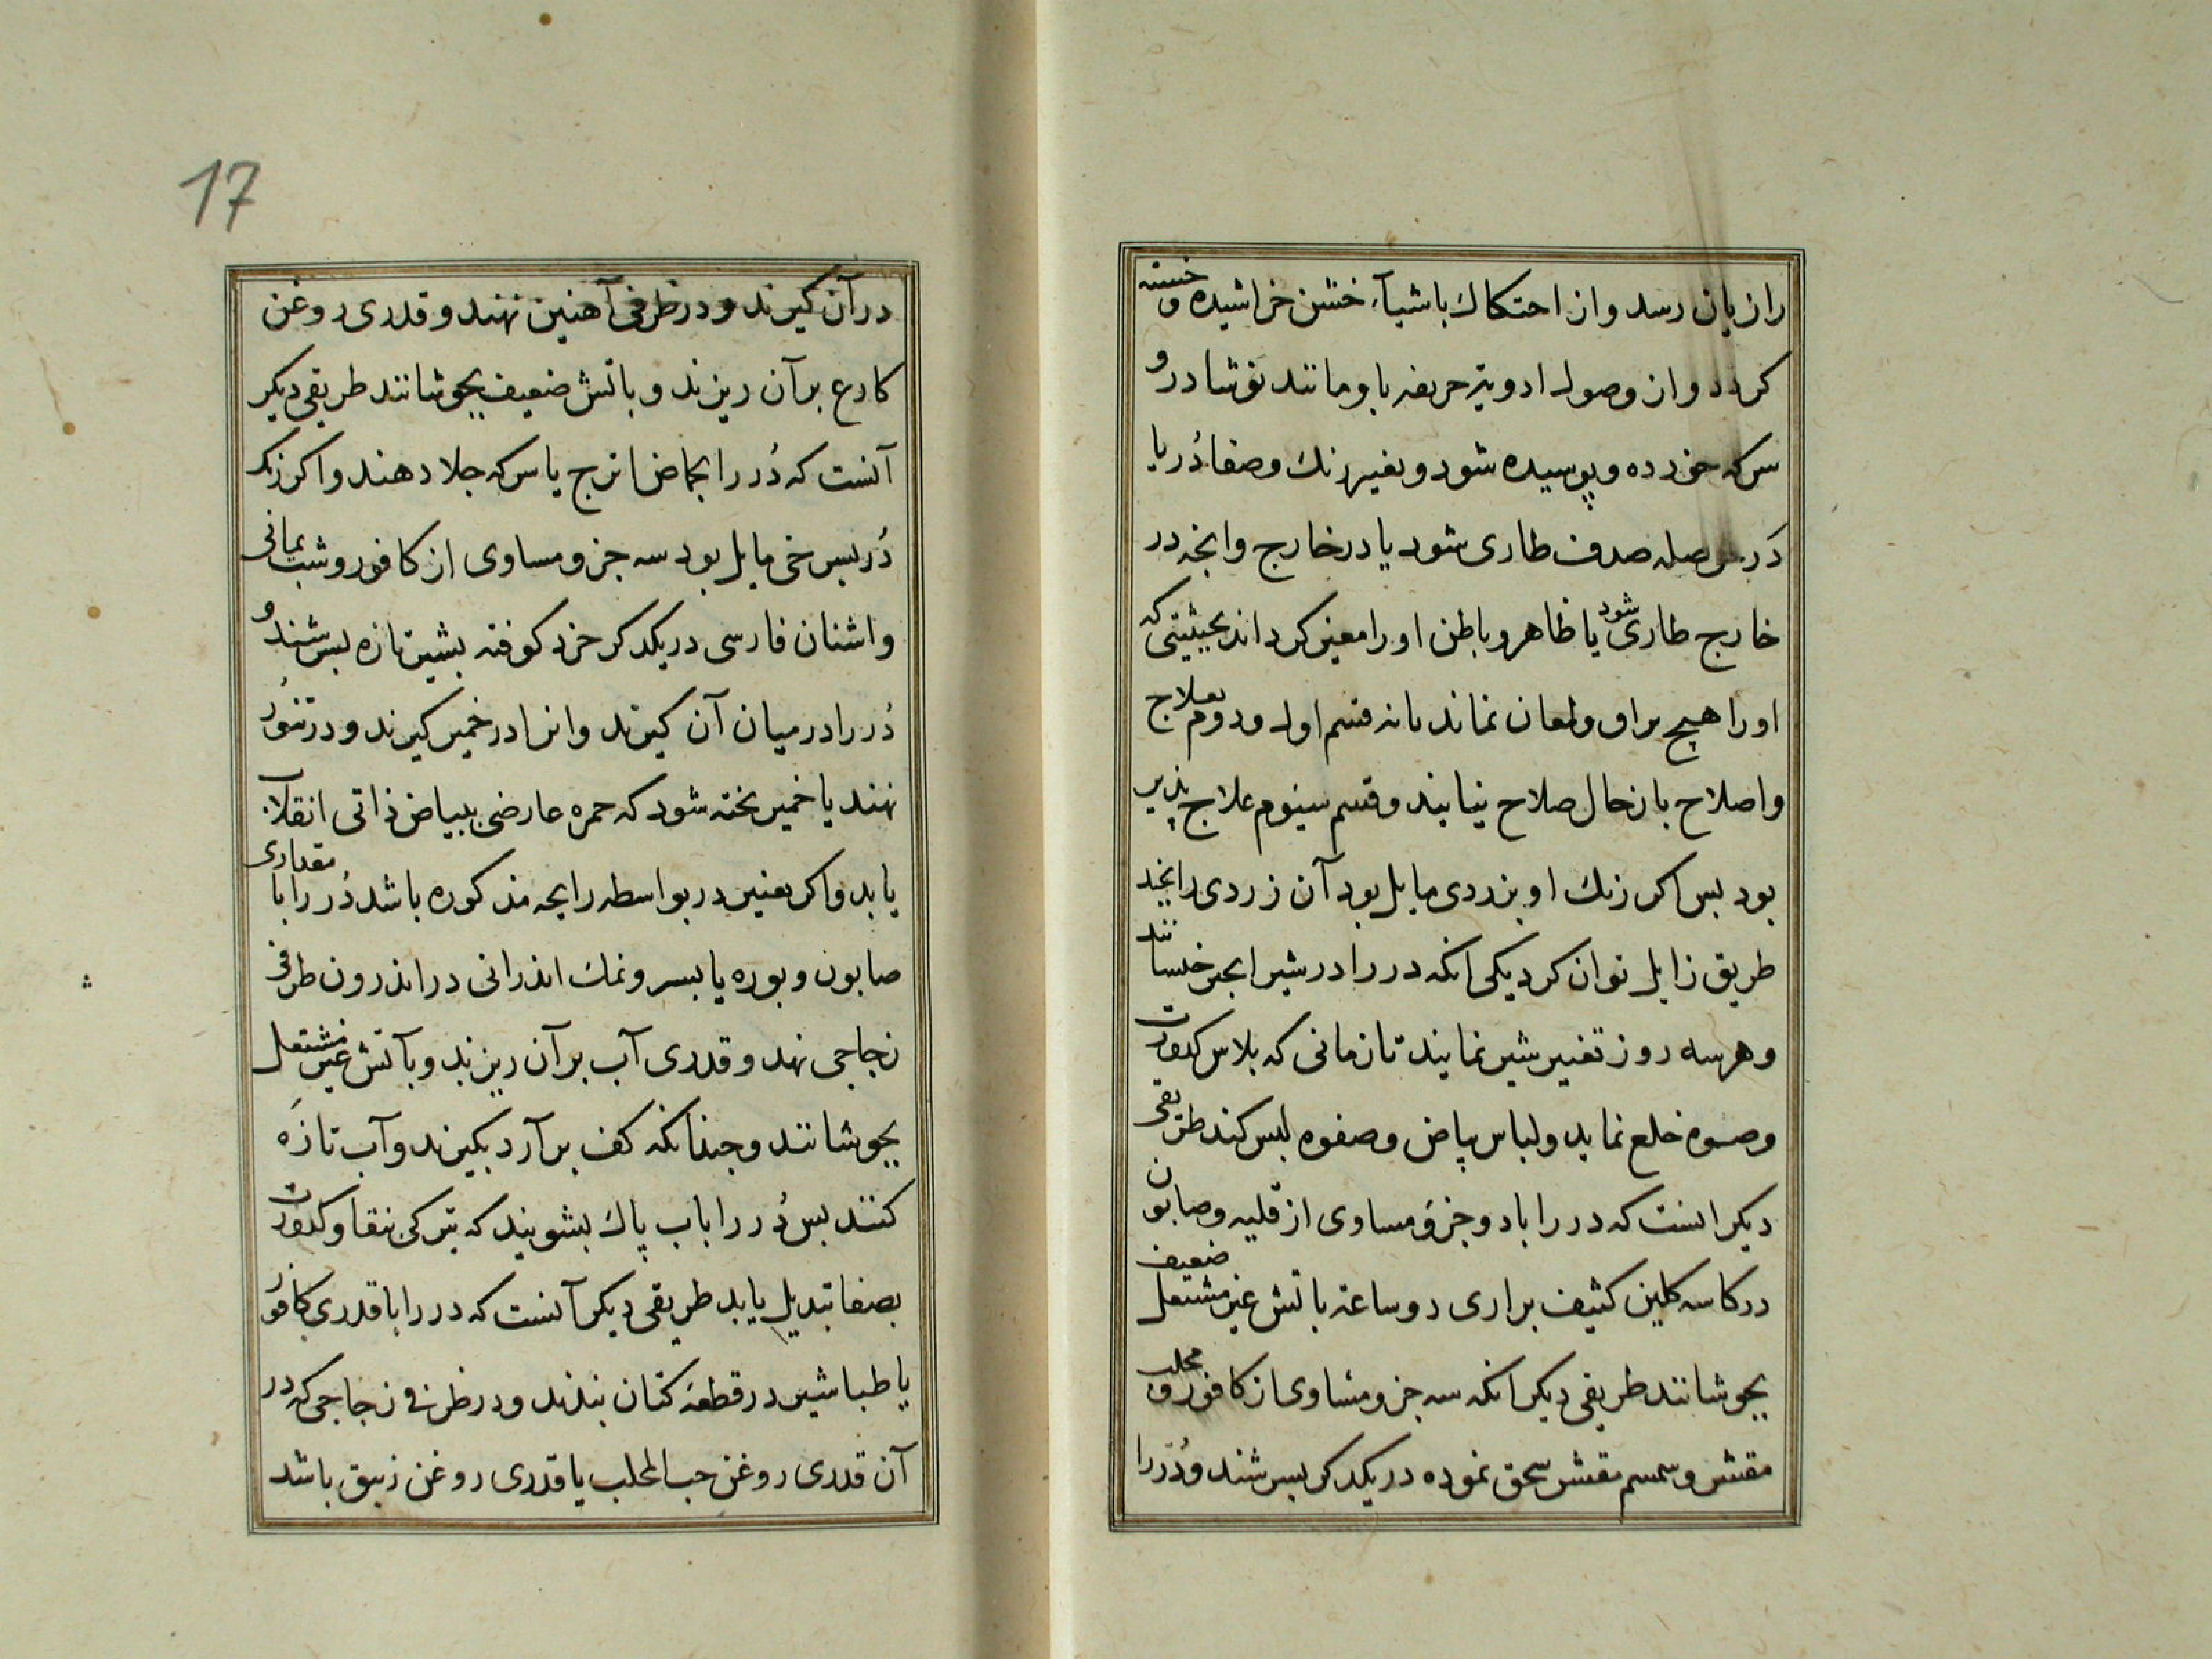 را زیان رسد و از احتکاک باشیآء خشن خراشیده و خسته
کردد و از وصول ادویۀ حریفه باو مانند نوشادر و
سرکه خورده و پوسیده شود و تغیر رنك و صفا دُر یا
دَر حوصله صدف طاری شود یا در خارج و انچه در
خارج طاری شود یا ظاهر و باطن او را متغیر کرداند بحیثیتی که
او را هیچ براق و لمعان نماند یا نه قسم اول و دوم بعلاج
و اصلاح باز حال صلاح نیایند و قسم سیوم علاج پذیر
بود بس اکر رنك او بزردی مایل بود آن زردی را بچند
طریق زایل توان کرد یکی انکه در را در شیر انجیر خیسانند
و هر سه روز تغییر شیر نمایند تا زمانی که بلاس کدورت
وصوه خلع نماید و لباس بیاض و صفوه لبس کند طریقی
دیکر انست که در را با دو جزؤ مساوی از قلیه و صابون
در کاسه کلین کثیف براری دو ساعة باتش ضعیف غیر مشتعل
بجوشانند طریقی دیکر انکه سه جزو مساوی از کافور و محلب
مقشر و سمسم مقشر سحق نموده در یکدکر بسرشند و دُر را
17
در آن کیرند و در ظرفی آهنین نهند و قدری روغن
کارع بر آن ریزند و باتش ضعیف بجوشانند طریقی دیکر
آنست که دُر را بحماض اترج یا سرکه جلا دهند و اکر رنك
دُر بسرخی مایل بود سه جزو مساوی از کافور و شب یمانی
و اشنان فارسی در یکدکر خرد کوفته بشیر تازه بسرشند و
دُر را در میان آن کیرند و انرا در خمیر کیرند و در تنور
نهند یا خمیر بخته شود که حمره عارضی ببیاض ذاتی انقلاب
یابد و اکر تغییر در بواسطه رایحه مذکوره باشد دُر را با مقداری
صابون و بوره یا بسر و نمك اندرانی در اندرون ظرفی
زجاجی نهد و قدری آب بر آن ریزند و بآتش غیر مشتعل
بجوشانند و چندانکه کف بر آرد بکیرند و آب تازَه
کنند بس دُر را باب پاك بشویند که تیرکی بنقا و کدورت
بصفا تبدیل یابد طریقی دیکر آنست که در را با قدری کافور
یا طباشیر در قطعۀ کتان بندند و در ظرفی زجاجی که در
آن قدری روغن حب المحلب یا قدری روغن زیبق باشد